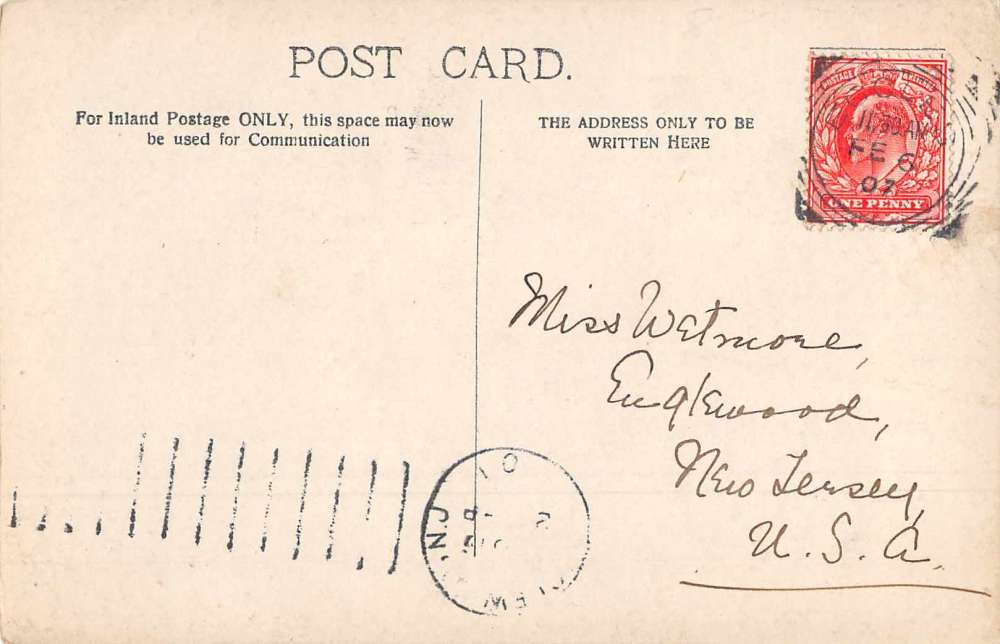 POST CARD.
For Inland Postage ONLY, this space may now
be used for Communication
THE ADDRESS ONLY TO BE
WRITTEN HERE
POSTAGE REVENUE
11.30 AM
FE 6
07
ONE PENNY
Miss Wetmore,
Englewood,
New Jersey,
U. S. A.
N.J.